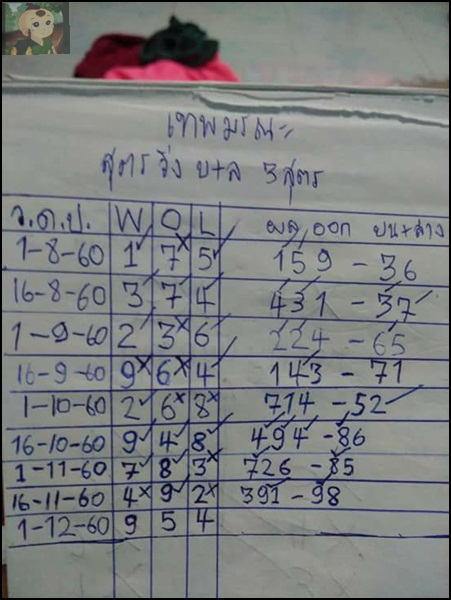 เทพมรณะ
สูตร วิ่ง บ+ล 3 สูตร
ว.ด.ป. W O L ผล ออก บน+ล่าง
1-8-60 1✓ 7× 5✓ 159 - 36
16-8-60 3✓ 7✓ 4✓ 431 - 37
1-9-60 2✓ 3× 6✓ 224 - 65
16-9-60 9× 6× 4✓ 143 - 71
1-10-60 2✓ 6× 8× 714 - 52
16-10-60 9✓ 4✓ 8✓ 494 - 86
1-11-60 7✓ 8✓ 3× 726 - 85
16-11-60 4× 9✓ 2× 391 - 98
1-12-60 9 5 4